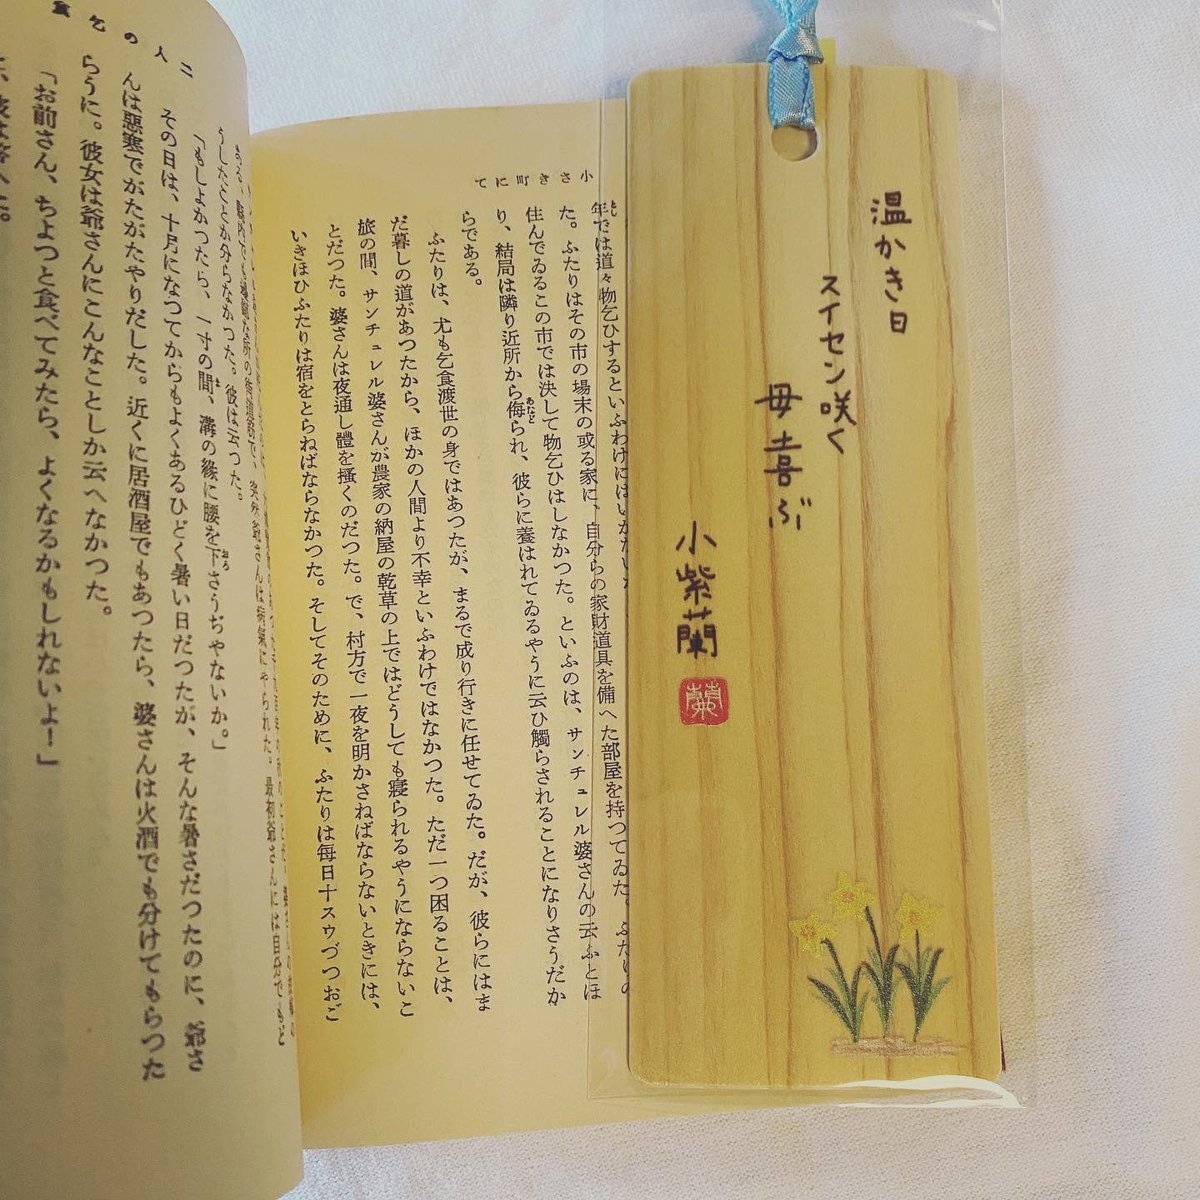 温かき日
スイセン咲く
母喜ぶ
小紫蘭
蘭
小さき町にて
年では道々物乞ひするといふわけにはいかないか
た。ふたりはその市の場末の或る家に、自分らの家財道具を備へた部屋を持つてゐた。ふたりの
住んでゐるこの市では決して物乞ひはしなかつた。といふのは、サンチュレル婆さんの云ふとほ
り、結局は隣り近所から侮られ、彼らに養はれてゐるやうに云ひ觸らされることになりさうだか
あなど
らである。
ふたりは、尤も乞食渡世の身ではあつたが、まるで成り行きに任せてゐた。だが、彼らにはま
だ暮しの道があつたから、ほかの人間より不幸といふわけではなかつた。ただ一つ困ることは、
旅の間、サンチュレル婆さんが農家の納屋の乾草の上ではどうしても寢られるやうにならないこ
とだつた。婆さんは夜通し體を搔くのだつた。で、村方で一夜を明かさねばならないときには、
いきほひふたりは宿をとらねばならなかつた。そしてそのために、ふたりは毎日十スウづつおご
二人の乞食
うしたことか分らなかつた。彼は云つた。
「もしよかつたら、一寸の間、溝の緣に腰を下さうぢやないか。」
ま
おろ
その日は、十月になつてからもよくあるひどく暑い日だつたが、そんな暑さだつたのに、爺さ
んは惡寒でがたがたやりだした。近くに居酒屋でもあつたら、婆さんは火酒でも分けてもらつた
らうに。彼女は爺さんにこんなことしか云へなかつた。
「お前さん、ちよつと食べてみたら、よくなるかもしれないよ！」
彼は答へた。